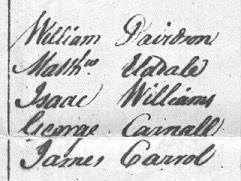 William Davidson
Matth.w Udale
Isaac Williams
George Carnall
James Carrol